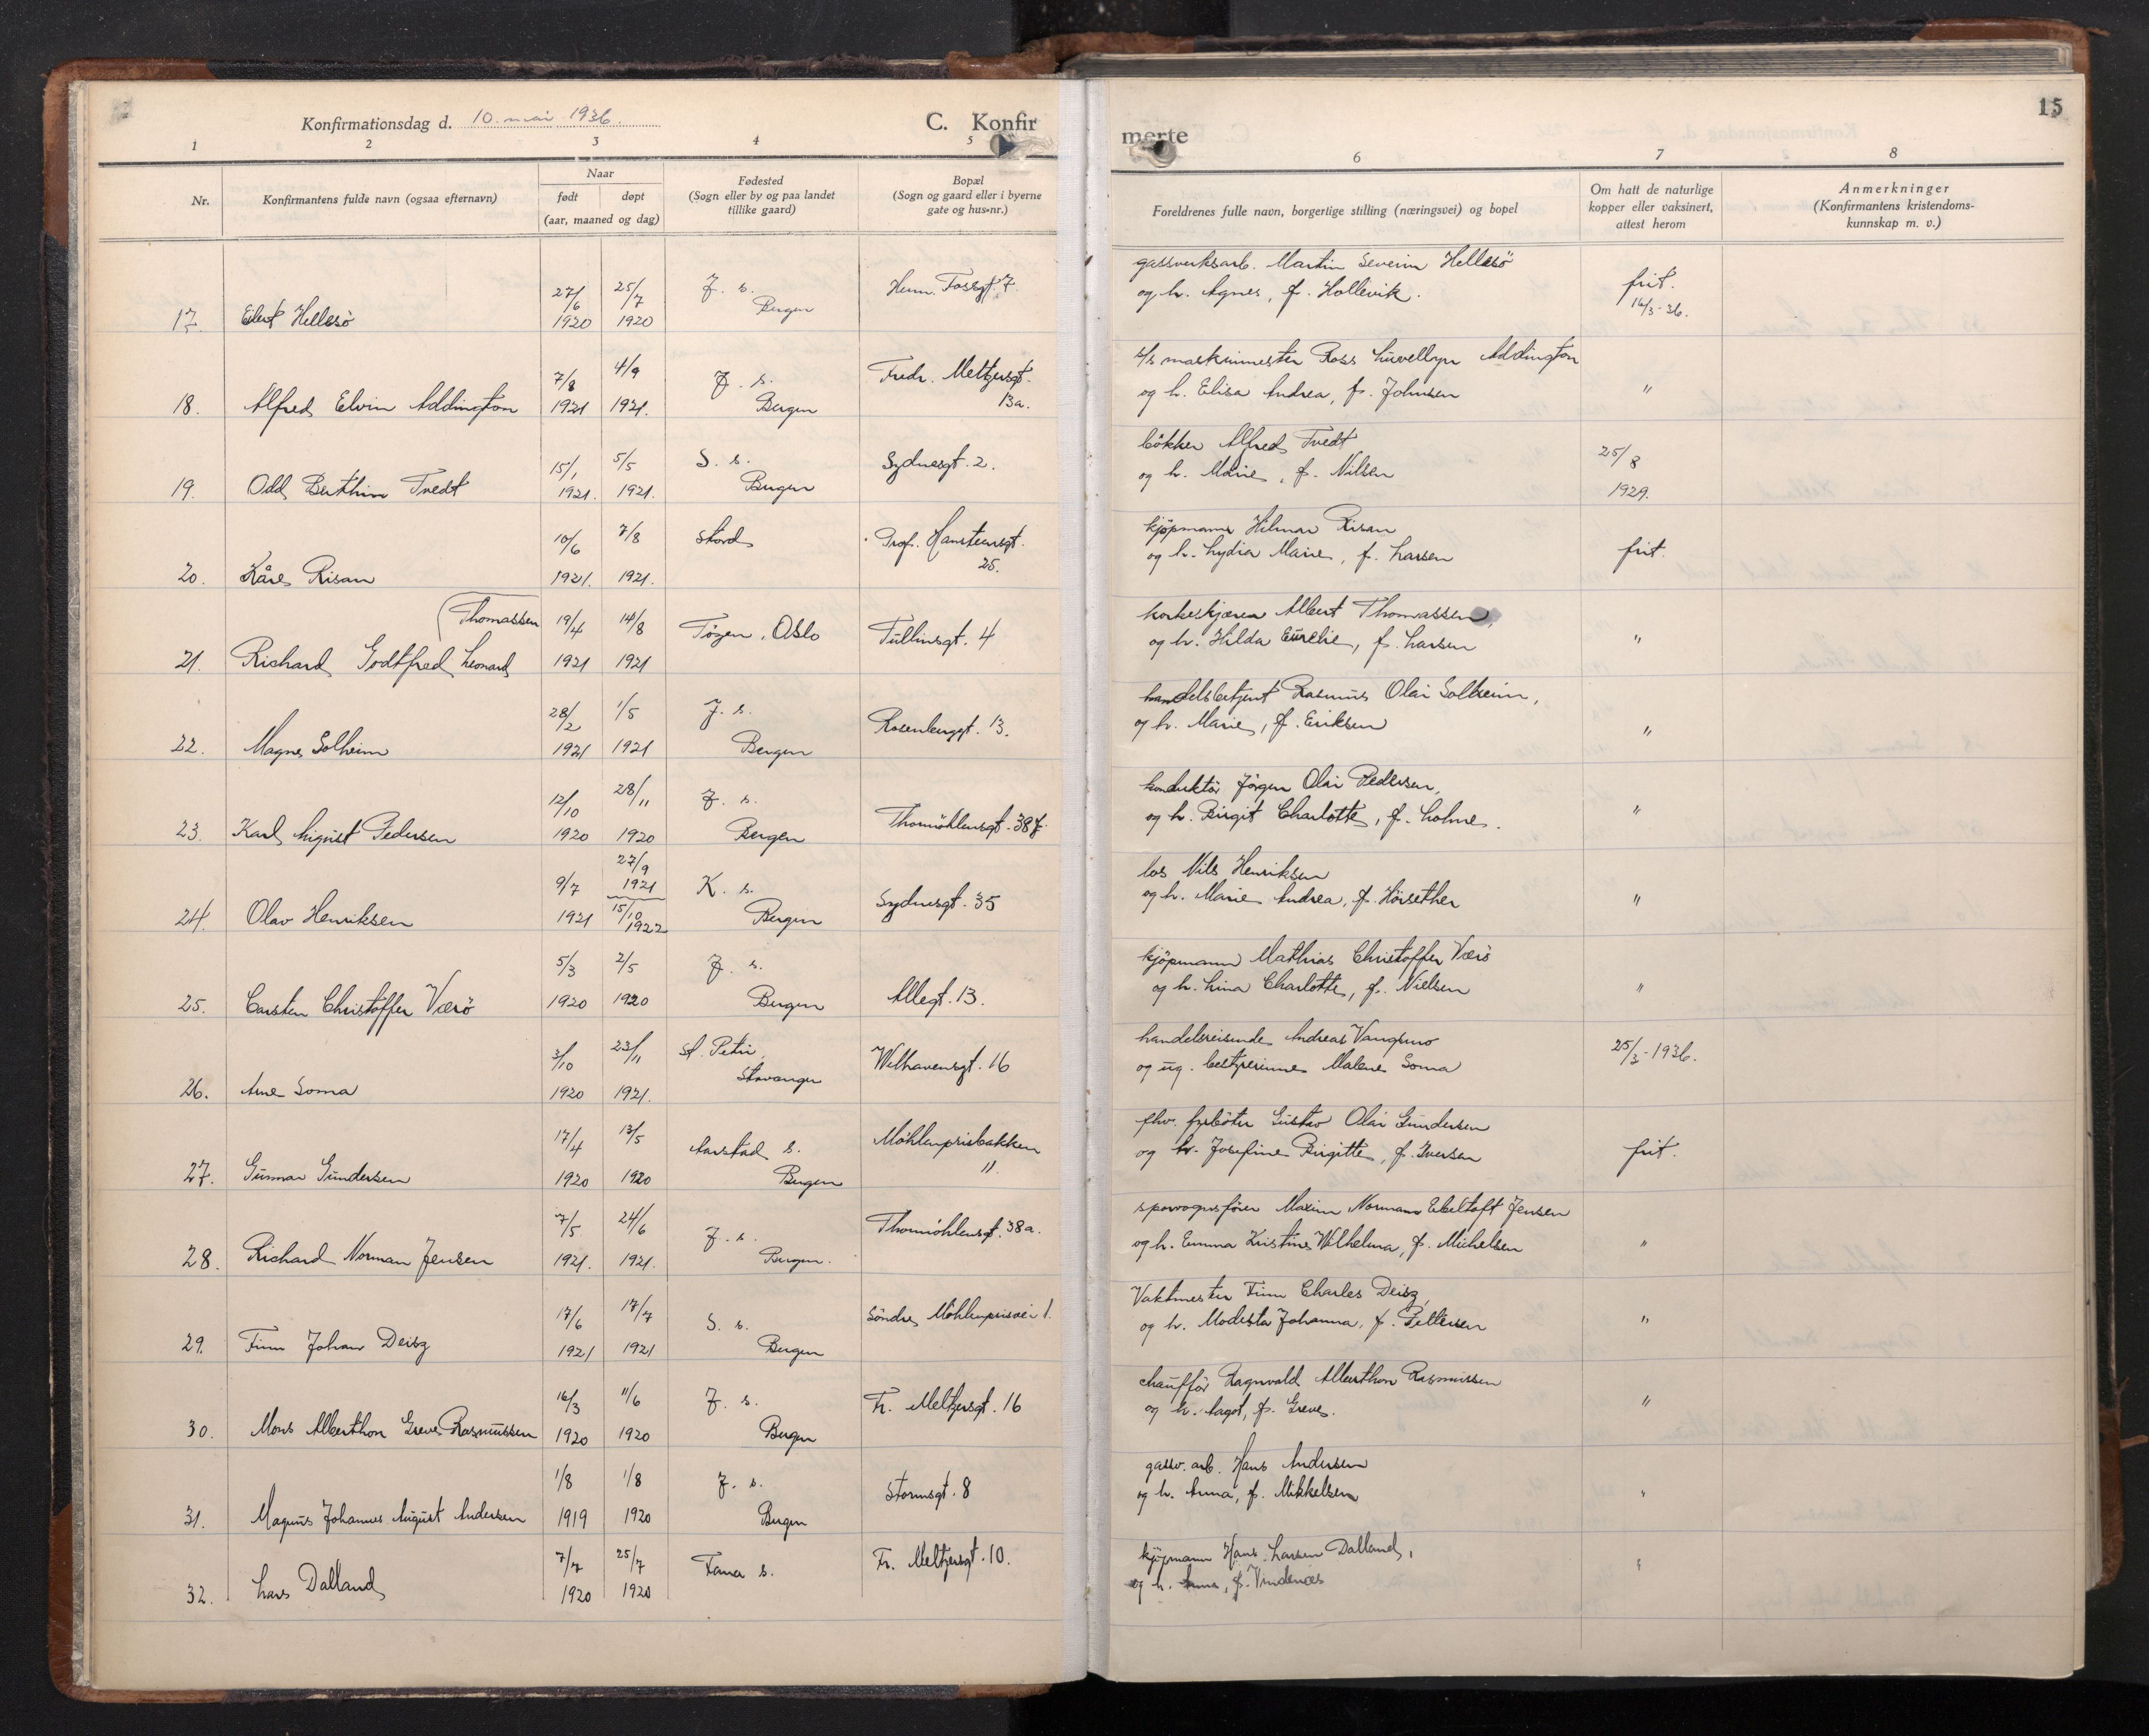 Konfirmationsdag d. 10. mai 1936.
C. Konfirmerte
15
1 2 3 4 5 6 7 8
Nr.
Konfirmantens fulde navn (ogsaa efternavn)
Naar
født døpt
(aar, maaned og dag)
Fødested
(Sogn eller by og paa landet
tillike gaard)
Bopæl
(Sogn og gaard eller i byerne
gate og hus-nr.)
Foreldrenes fulle navn, borgerlige stilling (næringsvei) og bopel
Om hatt de naturlige
kopper eller vaksinert,
attest herom
Anmerkninger
(Konfirmantens kristendoms-
kunnskap m. v.)
17. Eilert Hellesö 27/6 1920 25/7 1920 J. s. Bergen Herm. Fossgt. 7
gassverksarb. Martin Severin Hellesö
og h. Agnes, f. Hollevik.
frit. 16/3-36.
18. Alfred Elvin Addington 7/8 1921 4/9 1921. J. s. Bergen Fredr. Meltzersgt. 13a.
maskinmester Ross Addington
og h. Elisa Andrea, f. Johnsen
"
19. Odd Berthin Tvedt 15/1 1921. 5/5 1921. S. s. Bergen Sydnesgt. 2.
bökker Alfred Tvedt
og h. Marie, f. Nilsen
25/8 1929.
20. Kåre Risan 10/6 1921. 7/8 1921. Stord Prof. Hansteensgt. 25.
kjöpmann Hilmar Risan
og h. Lydia Marie, f. Larsen
frit.
21. Richard Godtfred Leonard (Thomassen 19/4 1921 14/8 1921 Tøyen, Oslo Tullinsgt. 4
Albert Thomassen,
og h. Hilda Eurelie, f. Larsen
"
22. Magne Solheim 28/2 1921 1/5 1921 J. s. Bergen Rosenberggt. 13.
handelsbetjent Rasmus Olai Solheim,
og h. Marie, f. Eriksen
"
23. Karl August Pedersen 12/10 1920 28/11 1920 J. s. Bergen Thormöhlensgt. 38 f.
konduktör Jörgen Olai Pedersen,
og h. Birgit Charlotte, f. Holme.
"
24. Olav Henriksen 9/7 1921 27/9 1921 15/10 1922 K. s. Bergen Sydnesgt. 35
los Nils Henriksen
og h. Marie Andrea, f. Hörsether
"
25. Carsten Christoffer Værö 5/3 1920 2/5 1920 J. s. Bergen Allegt. 13.
kjöpmann Mathias Christoffer Værö
og h. Lina Charlotte, f. Nielsen
"
26. Arne Soma 3/10 1920 23/11 1921. St. Petri, Stavanger Welhavensgt. 16
handelsreisende Andreas
og ug. Malene Soma
25/3-1936.
27. Gunnar Gundersen 17/4 1920 13/5 1920 Aarstad s. Bergen Möhlenprisbakken 11.
fhv. fyrböter Gustav Olai Gundersen
og h. Josefine Birgitte, f. Iversen
frit.
28. Richard Norman Jensen 7/5 1921. 24/6 1921. J. s. Bergen. Thormöhlensgt. 38a.
sporvognsförer Maxim Norman Ebeltoft Jensen
og h. Emma Kristine Wilhelma, f. Michelsen
"
29. Finn Johan Deisz 17/6 1921 17/7 1921 S. s. Bergen Söndre Möhlenprisvei 1.
Vaktmester Finn Charles Deisz,
og h. Modesta Johanna, f. Pettersen
"
30. Mons Alberthon Greve Rasmussen 16/3 1920 11/6 1920 J. s. Bergen Fr. Meltzersgt. 16
chaufför Ragnvald Alberthon Rasmussen
og h. Aagot, f. Greve.
"
31. Magnus Johannes August Andersen 1/8 1919 1/8 1920 J. s. Bergen Stormsgt. 8
gassv. arb. Hans Andersen
og h. Anna, f. Mikkelsen
"
32. Lars Dalland 7/7 1920 25/7 1920 Fana s. Fr. Meltzersgt. 10.
kjöpmann Hans Larsen Dalland,
og h. Anna, f. Vindenes
"